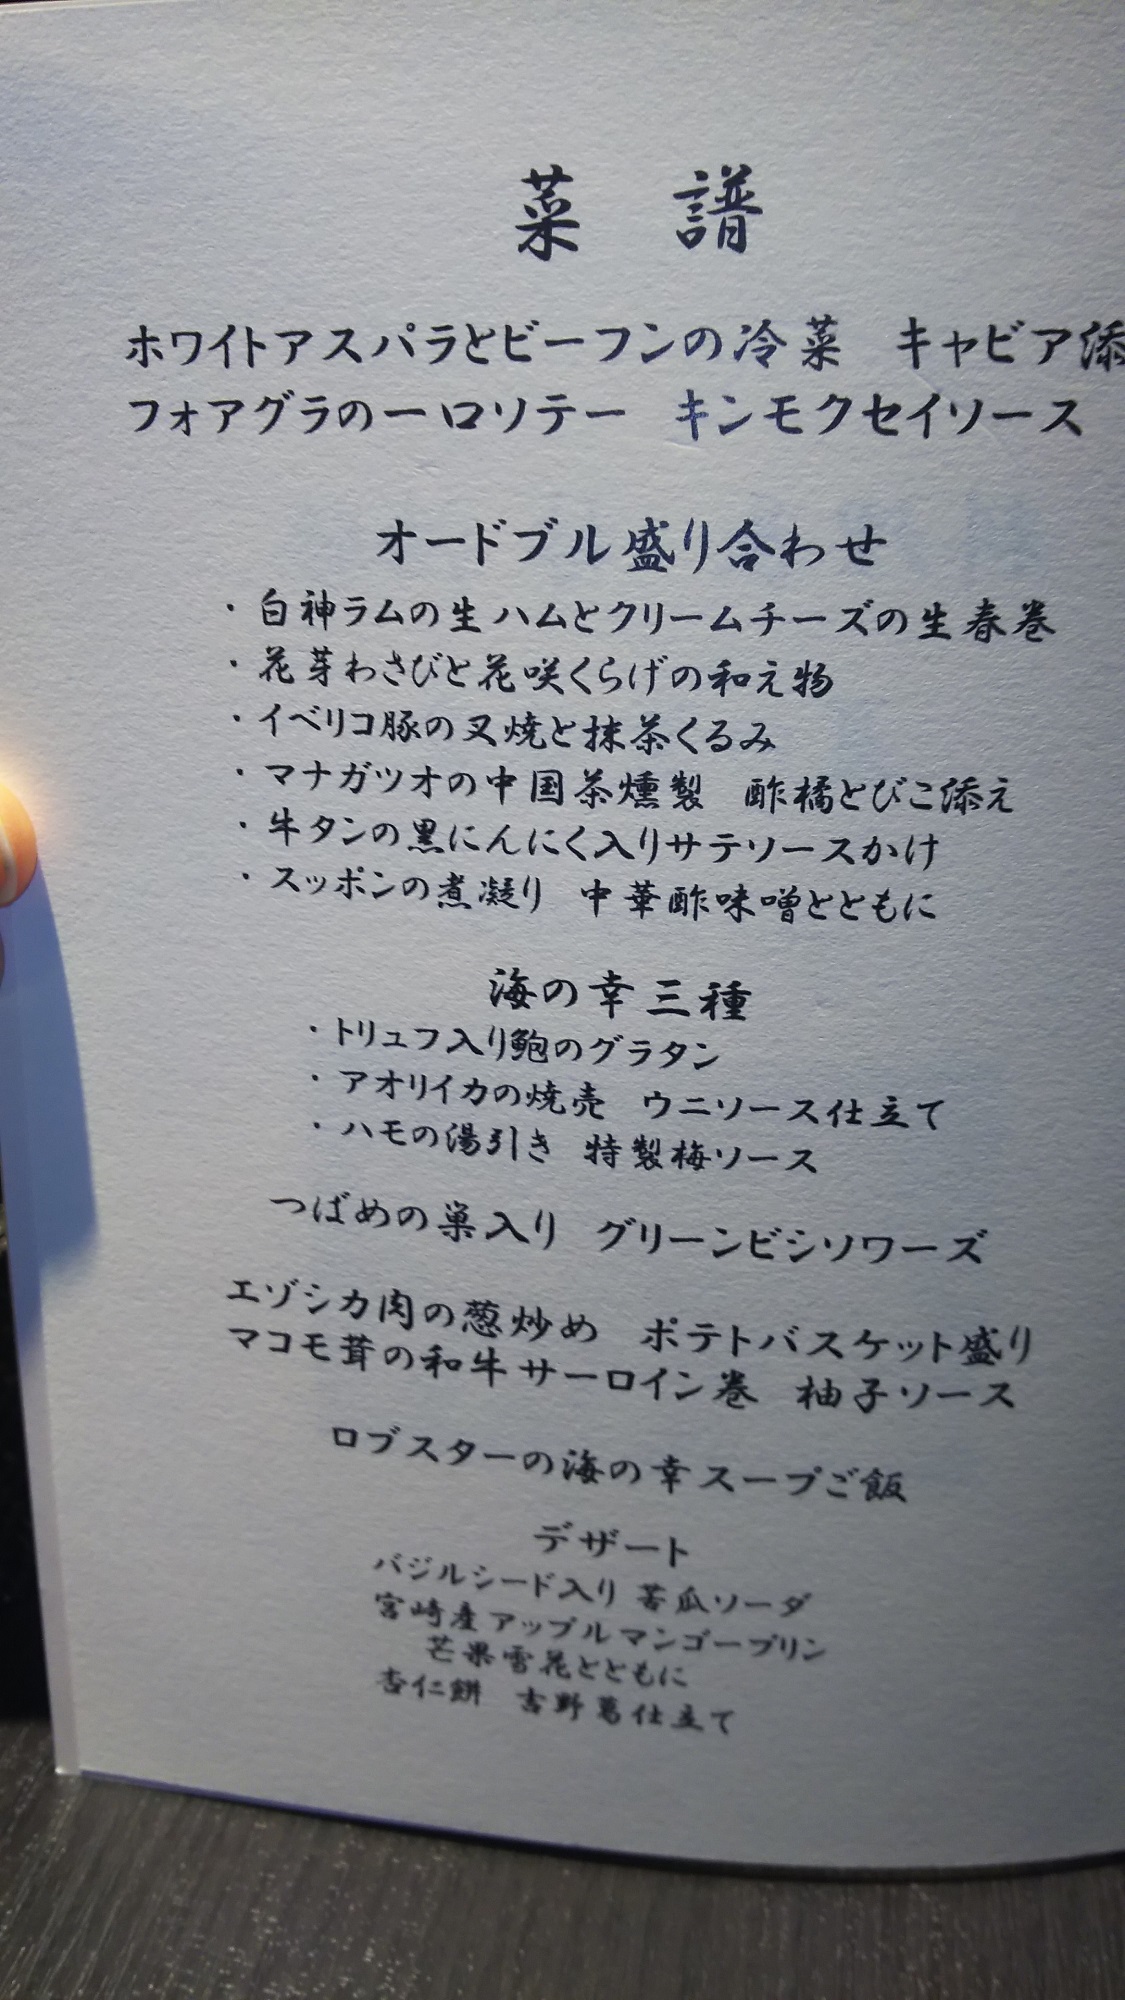 菜 譜
ホワイトアスパラとビーフンの冷菜 キャビア添
フォアグラの一口ソテー キンモクセイソース
オードブル盛り合わせ
・白神ラムの生ハムとクリームチーズの生春巻
・花芽わさびと花咲くらげの和え物
・イベリコ豚の叉焼と抹茶くるみ
・マナガツオの中国茶燻製 酢橘とびこ添え
・牛タンの黒にんにく入りサテソースかけ
・スッポンの煮凝り 中華酢味噌とともに
海の幸三種
・トリュフ入り鮑のグラタン
・アオリイカの焼売 ウニソース仕立て
・ハモの湯引き 特製梅ソース
つばめの巣入り グリーンビシソワーズ
エゾシカ肉の葱炒め ポテトバスケット盛り
マコモ茸の和牛サーロイン巻 柚子ソース
ロブスターの海の幸スープご飯
デザート
バジルシード入り 苦瓜ソーダ
宮崎産アップルマンゴープリン
芒果雪花とともに
杏仁餅 吉野葛仕立て